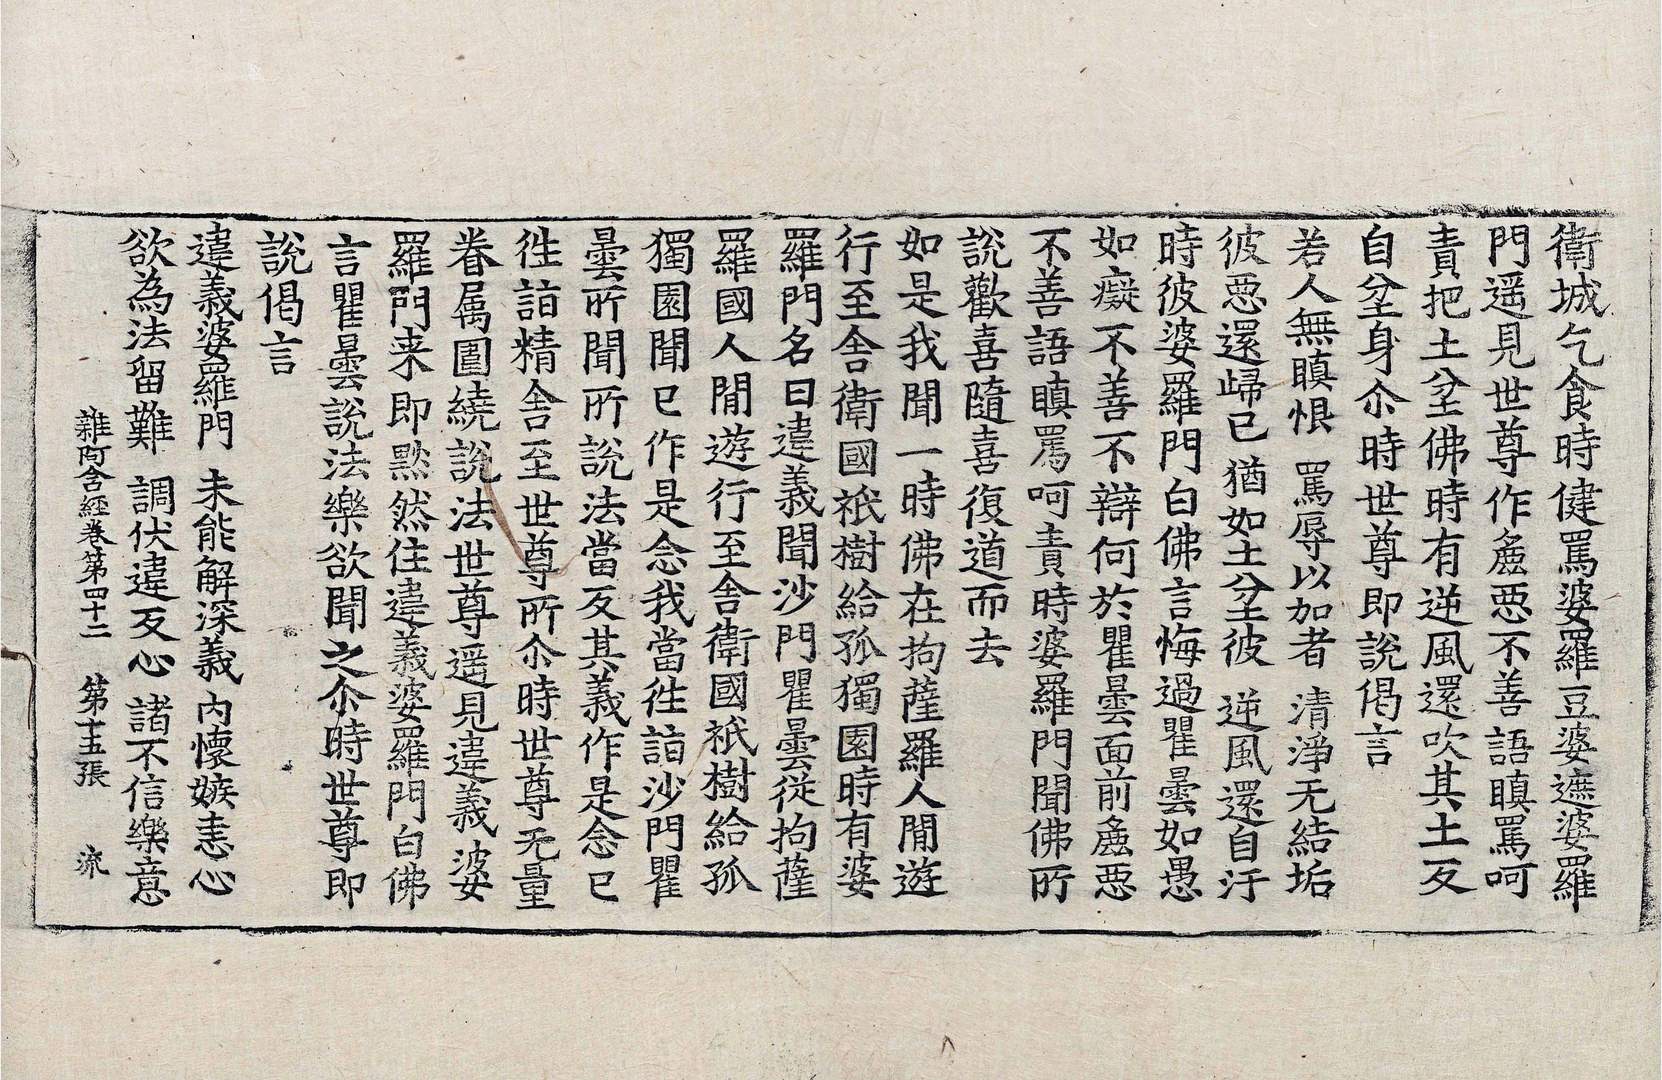 衛城乞食時健罵婆羅豆婆遮婆羅
門遥見世尊作麁惡不善語瞋罵呵
責把土坌佛時有逆風還吹其土反
自坌身尒時世尊即說偈言
若人無瞋恨 罵辱以加者 清淨无結垢
彼惡還歸已 猶如土坌彼 逆風還自汙
時彼婆羅門白佛言悔過瞿曇如愚
如癡不善不辯何於瞿曇面前麁惡
不善語瞋罵呵責時婆羅門聞佛所
說歡喜隨喜復道而去
如是我聞一時佛在拘薩羅人閒遊
行至舍衛國祇樹給孤獨園時有婆
羅門名曰違義聞沙門瞿曇從拘薩
羅國人閒遊行至舍衛國祇樹給孤
獨園聞已作是念我當往詣沙門瞿
曇所聞所說法當反其義作是念已
往詣精舍至世尊所尒時世尊无量
眷属圍繞說法世尊遥見違義婆
羅門来即黙然住違義婆羅門白佛
言瞿曇說法樂欲聞之尒時世尊即
說偈言
違義婆羅門 未能解深義 內懷嫉恚心
欲為法留難 調伏違反心 諸不信樂意
雜阿含經卷第四十二 第十五張 流